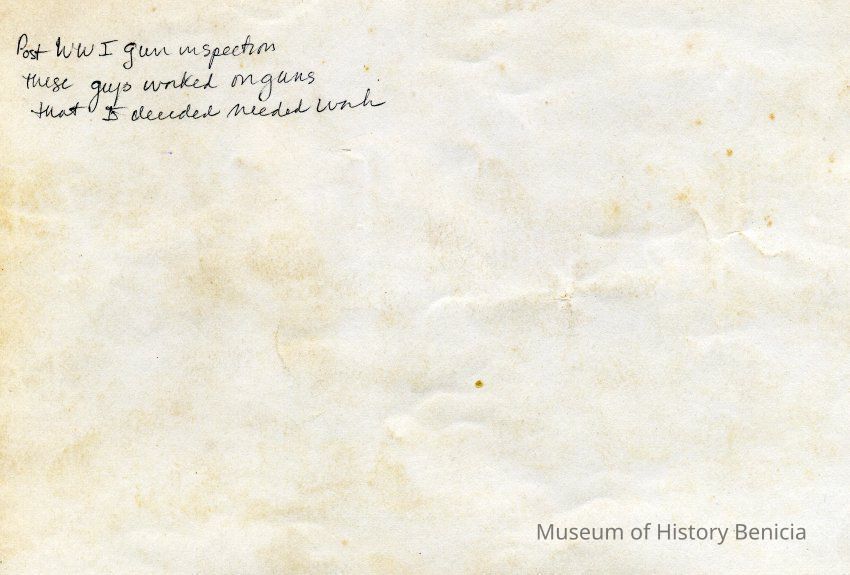 Post WWI gun inspection
these guys worked on guns
that I decided needed work
Museum of History Benicia